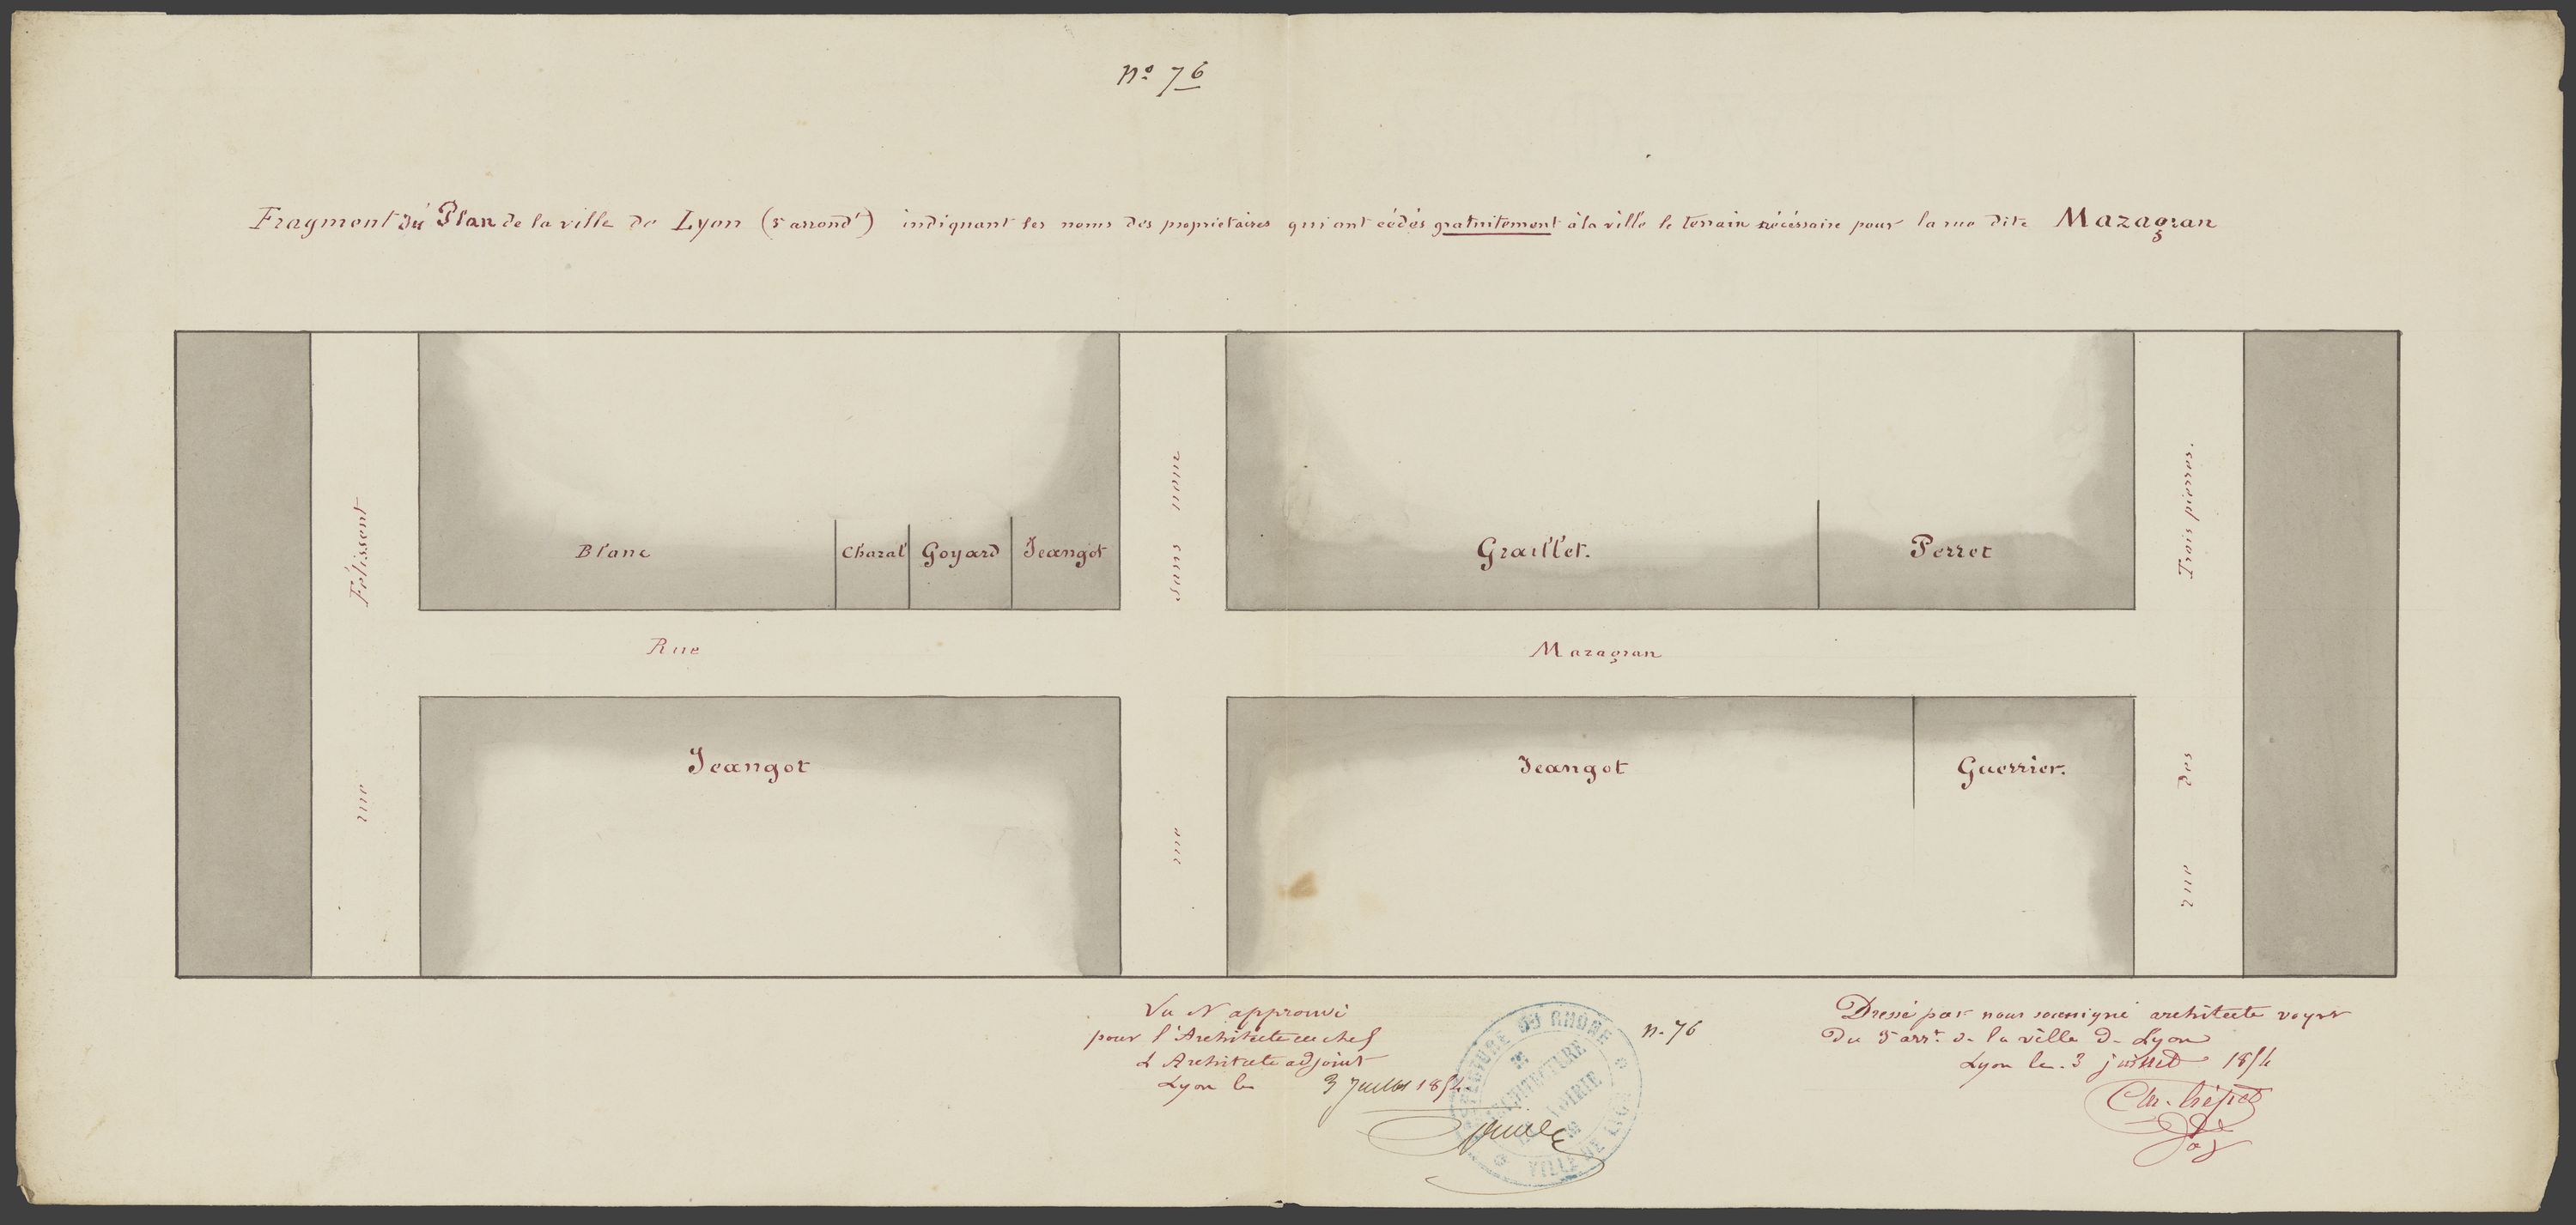 Nº 76
Fragment du Plan de la ville de Lyon (5 arrondt) indiquant les noms des propriétaires qui ont cédés gratuitement à la ville le terrain nécéssaire pour la rue dite Mazagran
Blanc Charal Goyard Jeangot Graillet. Perret
rue Félissent
rue sans nom
rue des Trois pierres.
Rue Mazagran
Jeangot Jeangot Guerrier.
Vu & approuvé
pour l'Architecte en chef
L'Architecte adjoint
Lyon le 3 Juillet 1854
n. 76
PRÉFECTURE DU RHÔNE
ARCHITECTURE
VOIRIE
VILLE DE LYON
Dressé par nous soussigné architecte voyer
du 5 arrt. de la ville de Lyon
Lyon le. 3 juillet 1854